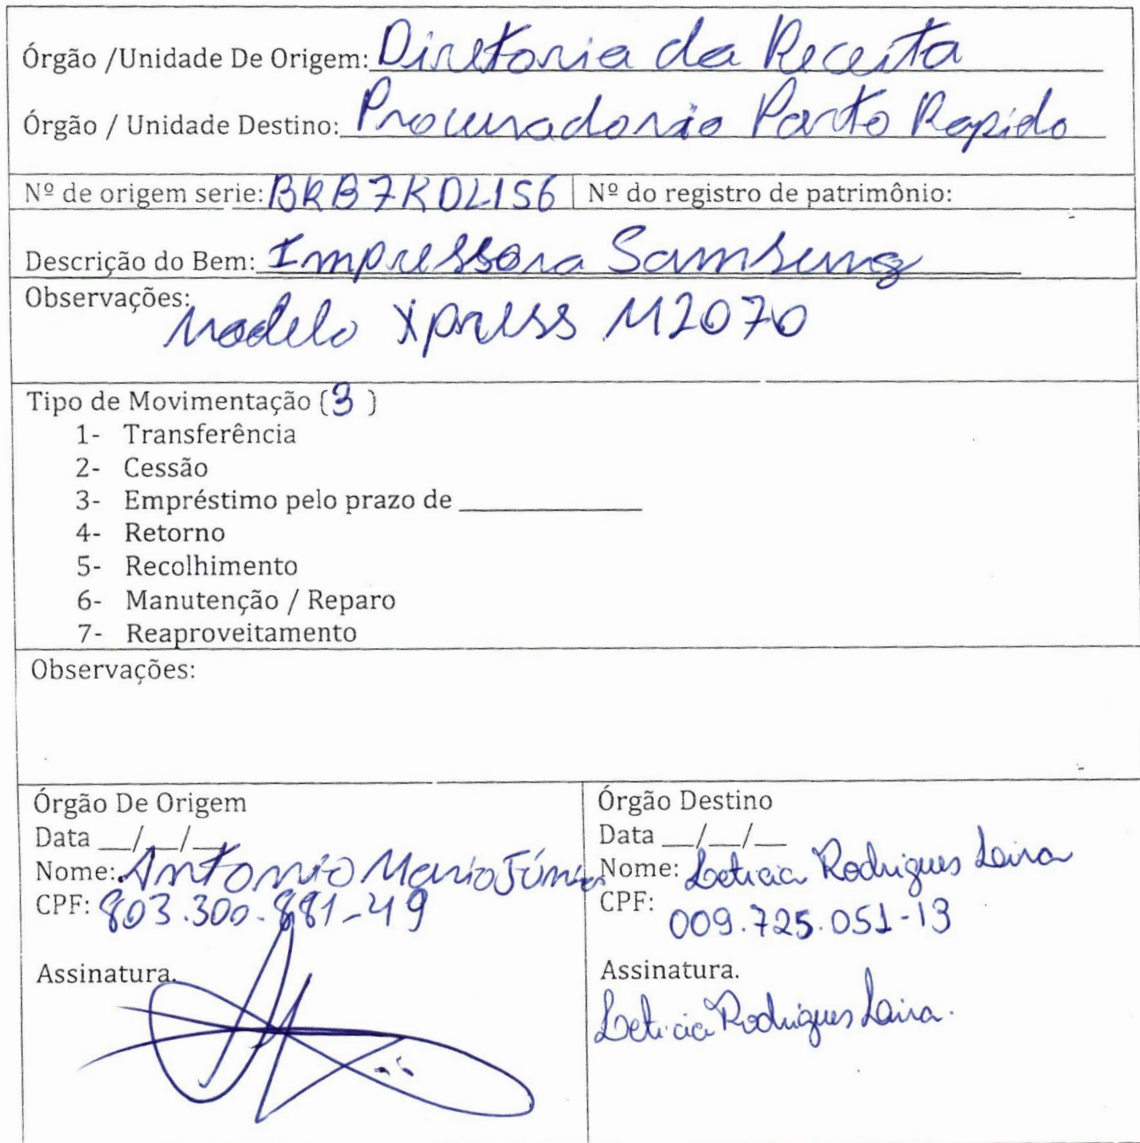 Órgão /Unidade De Origem: Diretoria da Receita
Órgão / Unidade Destino: Procuradoria Ponto Rapido
Nº de origem serie: BRB7KDL1S6 Nº do registro de patrimônio:
Descrição do Bem: Impressora Samsung
Observações:
Modelo Xpress M2070
Tipo de Movimentação (3 )
1- Transferência
2- Cessão
3- Empréstimo pelo prazo de ______________
4- Retorno
5- Recolhimento
6- Manutenção / Reparo
7- Reaproveitamento
Observações:
Órgão De Origem
Data __/__/__
Nome: Antonio Mario Júnior
CPF: 803.300.881-49
Assinatura.
Órgão Destino
Data __/__/__
Nome: Leticia Rodrigues
CPF:
009.725.051-13
Assinatura.
Leticia Rodrigues